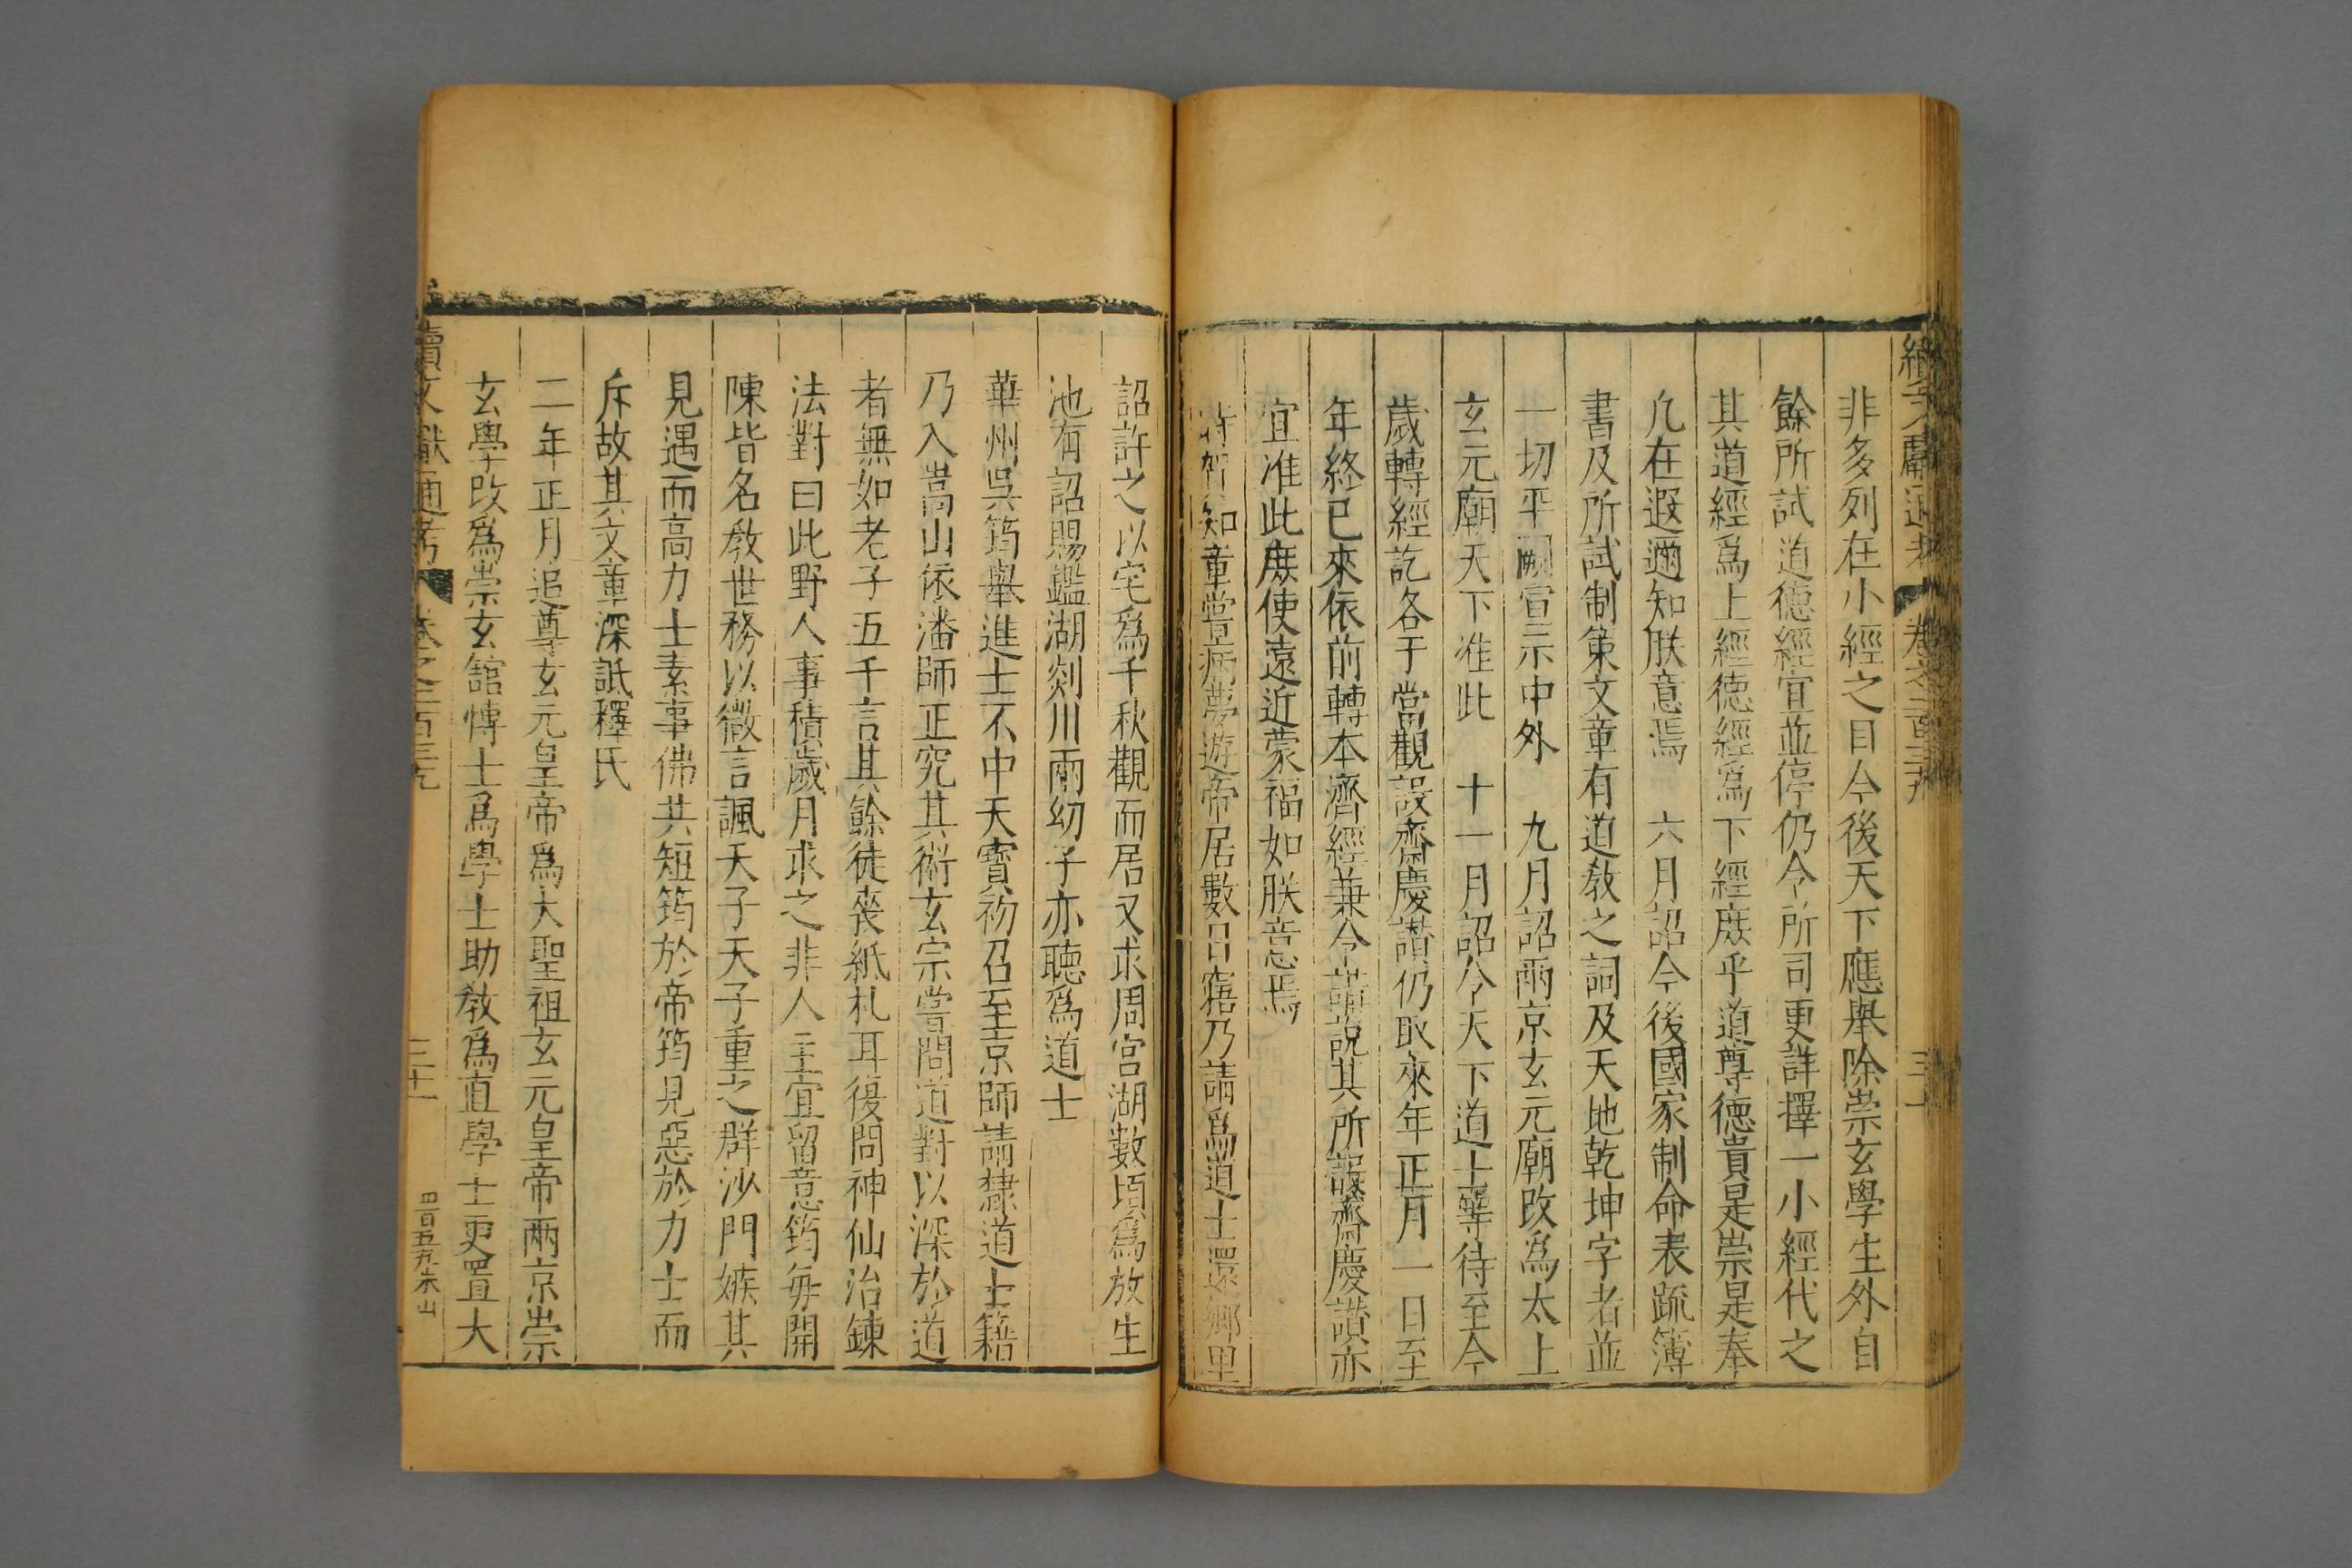 非多列在小經之目今後天下應舉除崇玄學生外自
餘所試道德經宜並停仍令所司更詳擇一小經代之
其道經爲上經德經爲下經庶乎道尊德貴是崇是奉
凡在遐邇知朕意焉　六月詔今後國家制命表疏簿
書及所試制策文章有道教之詞及天地乾坤字者並
一切平闕宣示中外　九月詔兩京玄元廟改爲太上
玄元廟天下准此　十一月詔令天下道士等待至今
歲轉經訖各于當觀設齋慶讃仍取來年正月一日至
年終已來依前轉本濟經兼令講說其所設齋慶讃亦
宜准此庶使遠近蒙福如朕意焉
許賀知章嘗病夢遊帝居數日寤乃請爲道士還鄉里
詔許之以宅爲千秋觀而居又求周宮湖數頃爲放生
池有詔賜鑑湖剡川兩幼子亦聽爲道士
華州吳筠舉進士不中天寶初召至京師請隸道士籍
乃入嵩山依潘師正究其術玄宗嘗問道對以深於道
者無如老子五千言其餘徒喪紙札耳復問神仙治鍊
法對曰此野人事積歲月求之非人主宜留意筠每開
陳皆名教世務以微言諷天子天子重之群沙門嫉其
見遇而高力士素事佛共短筠於帝筠見惡於力士而
斥故其文章深詆釋氏
二年正月追尊玄元皇帝爲大聖祖玄元皇帝兩京崇
玄學改爲崇玄舘博士爲學士助教爲直學士更置大
續文獻通考　卷之二百三九　三十一